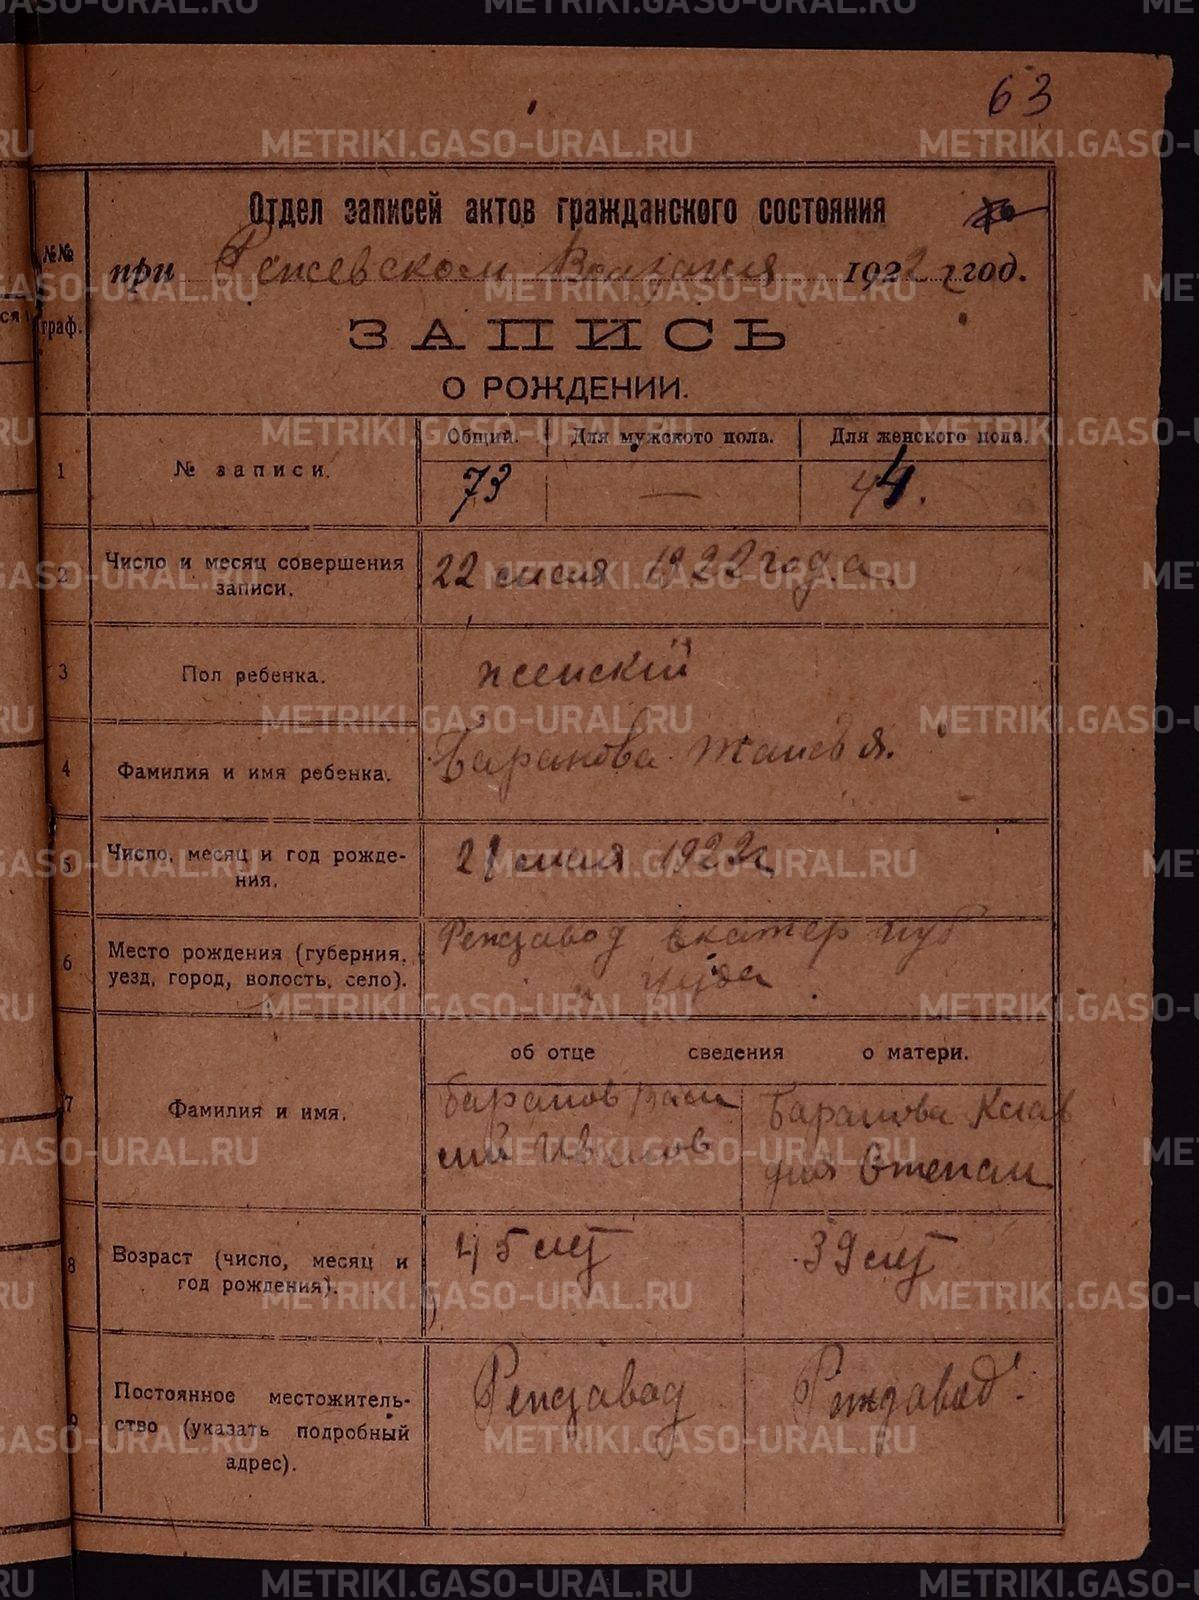 63
Отдел записей актов гражданского состояния
при Режевском 1922 г год.
№№ граф.
ЗАПИСЬ
О РОЖДЕНИИ.
1 № записи. Общий. Для мужского пола. Для женского пола.
73 — 44.
2 Число и месяц совершения записи. 22 июня 1922 года
3 Пол ребенка. женский
4 Фамилия и имя ребенка. Баранова
5 Число, месяц и год рождения. 21 июня 1922 г
6 Место рождения (губерния, уезд, город, волость, село). Режзавод Екатер губ
и уезда
об отце сведения о матери.
7 Фамилия и имя. Баранов Васи Баранова Клав
лий Иванов дия Степан
8 Возраст (число, месяц и год рождения). 45 лет 39 лет
9 Постоянное местожительство (указать подробный адрес). Режзавод Режзавод
METRIKI.GASO-URAL.RU